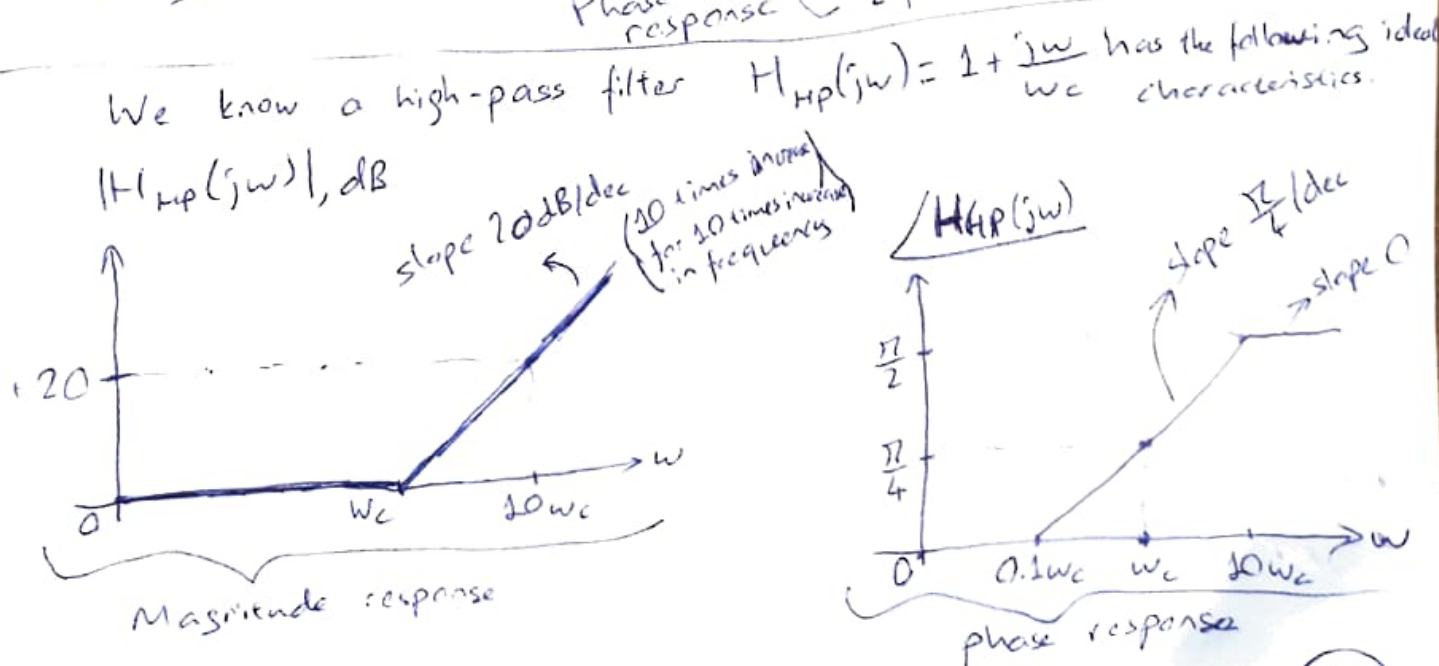 Phase
response
We know a high-pass filter H_HP(jw) = 1 + jw/wc has the following ideal
characteristics.
|H_HP(jw)|, dB
slope 20dB/dec
(10 times increase
for 10 times increase
in frequency)
+20
0
wc
10wc
w
Magnitude response
∠H_HP(jw)
slope π/4/dec
slope 0
π/2
π/4
0
0.1wc
wc
10wc
w
phase response